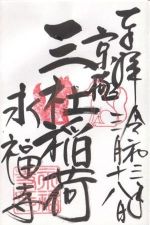 奉拝
令和三年
二月十八日
京極
三社稲荷
永福寺